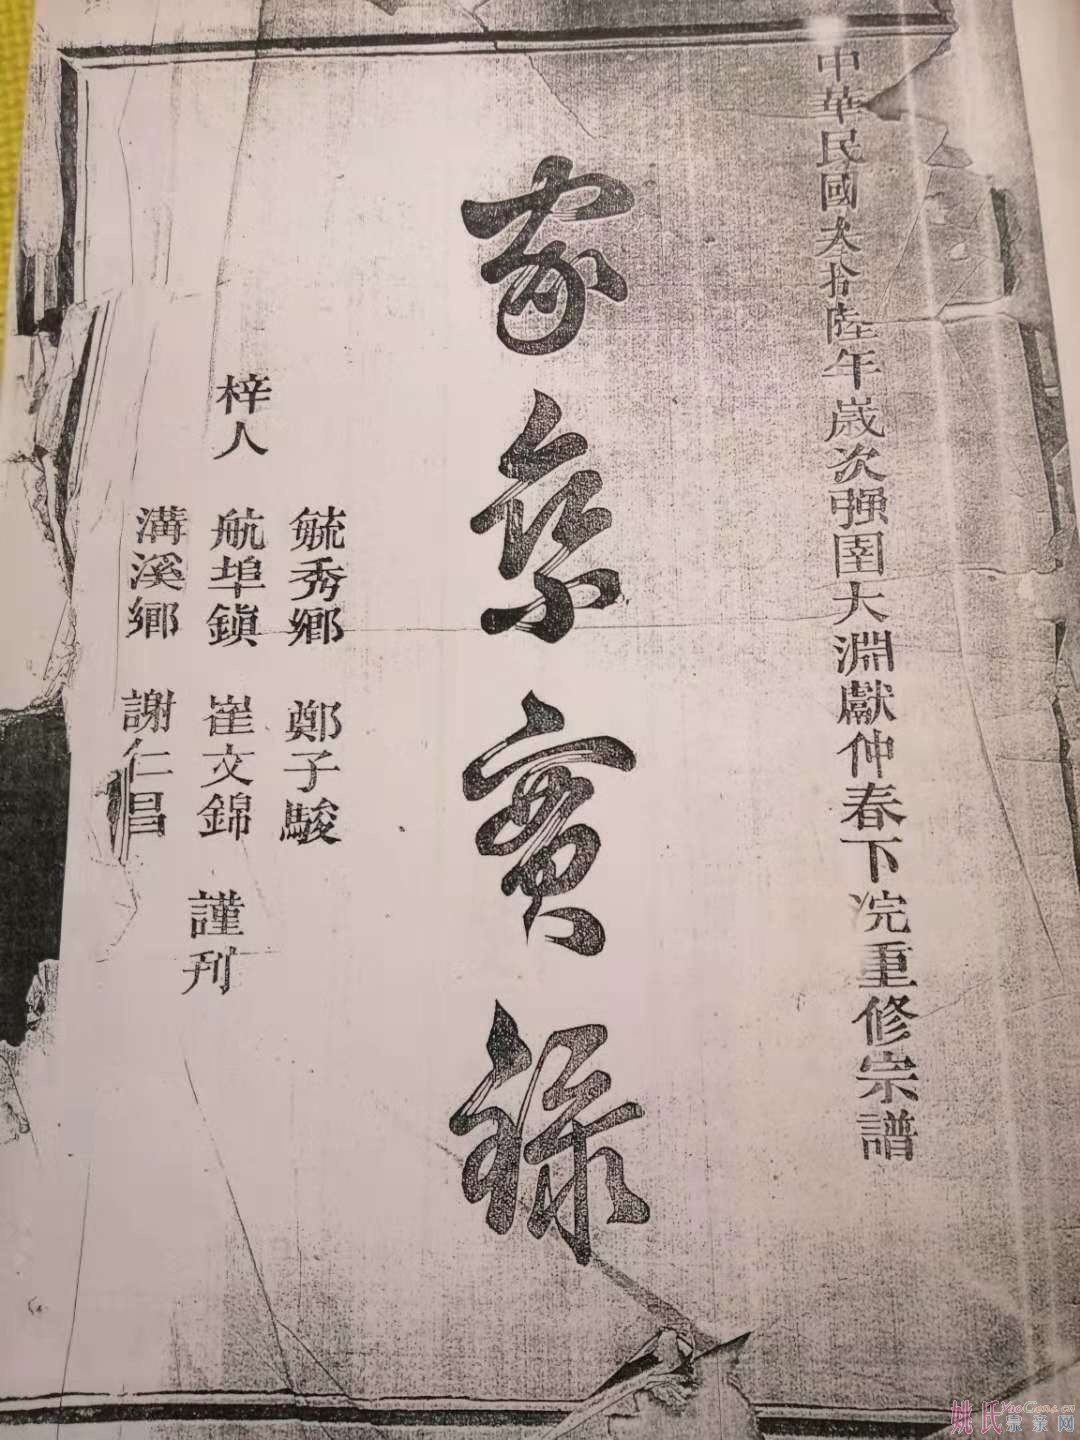 中華民國叁拾陸年歲次强圉大淵獻仲春下浣重修宗譜
家乘實錄
梓人
毓秀鄉 鄭子駿
航埠鎭 崔文錦
溝溪鄉 謝仁昌
謹刊
姚氏宗亲网
YaoGens.cn